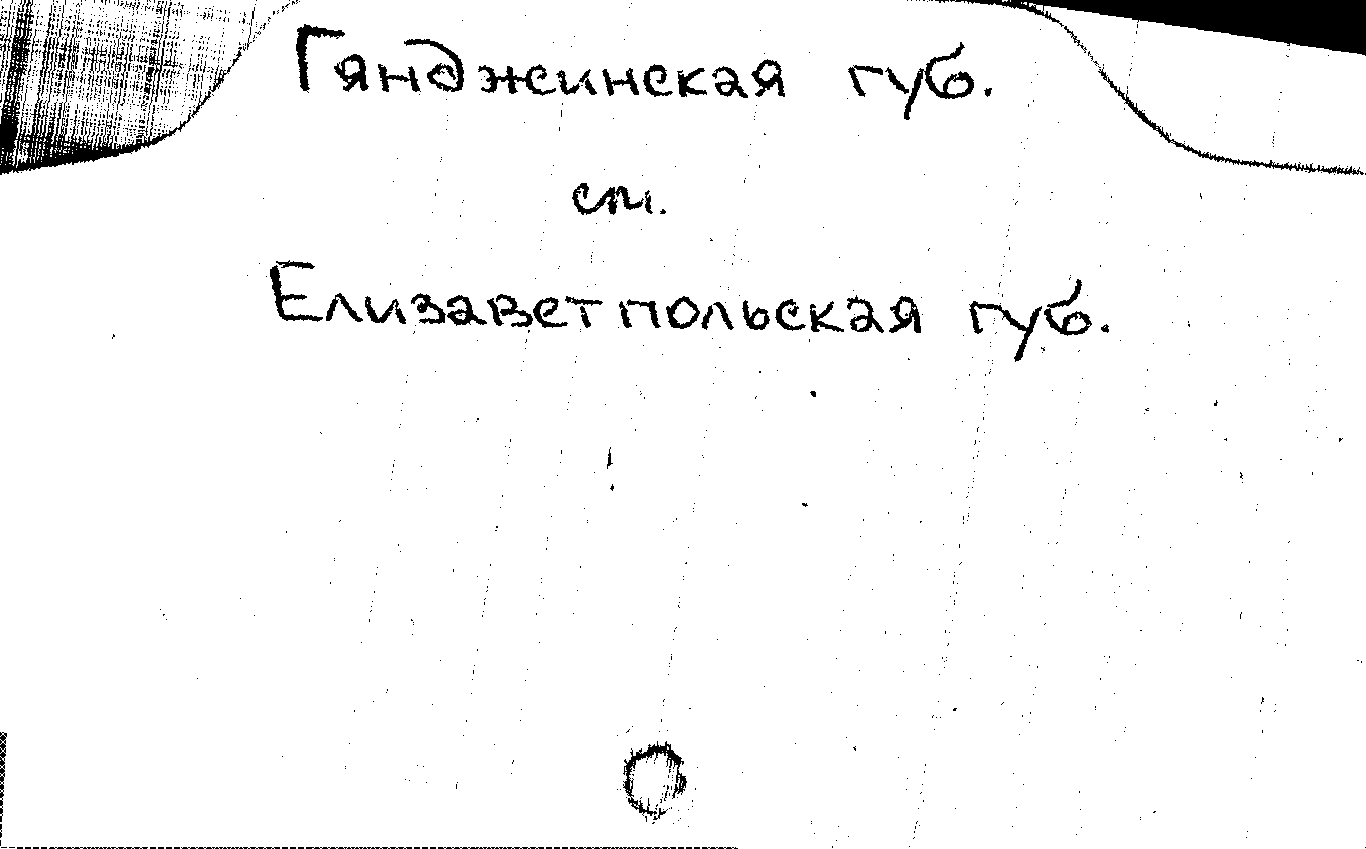 Гянджинская губ.
см.
Елизаветпольская губ.